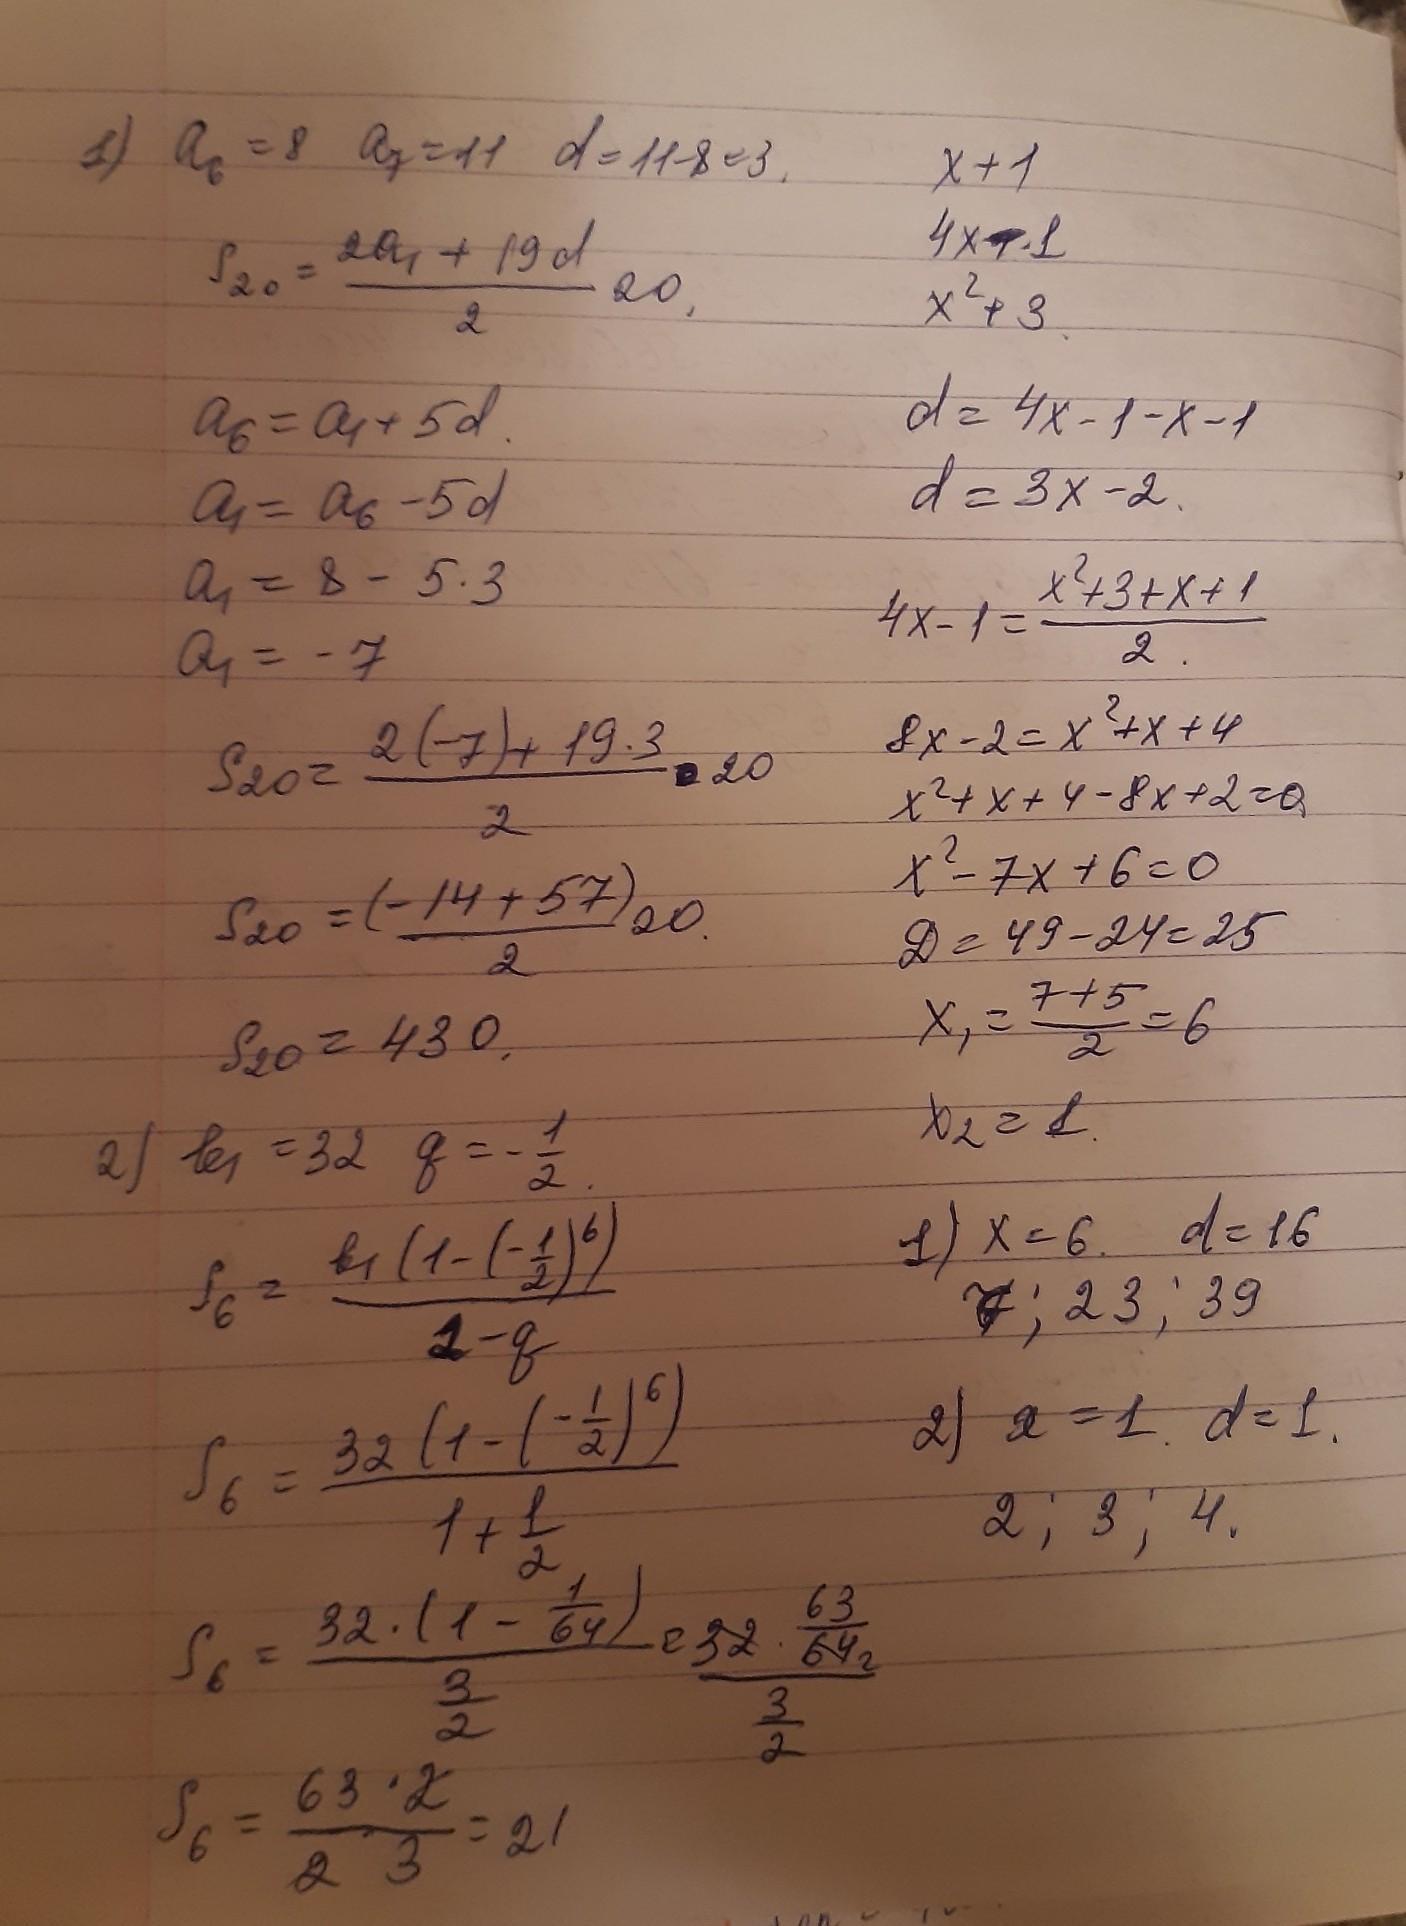 1) a₆ = 8 a₇ = 11 d = 11-8 = 3.
S₂₀ = (2a₁ + 19d)/2 20.
a₆ = a₁ + 5d.
a₁ = a₆ - 5d
a₁ = 8 - 5·3
a₁ = -7
S₂₀ = (2(-7) + 19·3)/2 · 20
S₂₀ = (-14 + 57)/2 20.
S₂₀ = 430.
2) b₁ = 32 q = -1/2.
S₆ = b₁(1-(-1/2)⁶)/(1-q)
S₆ = 32(1-(-1/2)⁶)/(1+1/2)
S₆ = 32·(1 - 1/64)/(3/2) = 32·63/64₂/(3/2)
S₆ = 63·2/2 3 = 21
x+1
4x-1
x²+3.
d = 4x-1-x-1
d = 3x-2.
4x-1 = (x²+3+x+1)/2.
8x-2 = x²+x+4
x²+x+4-8x+2=0
x²-7x+6=0
D = 49-24=25
x₁ = (7+5)/2 = 6
x₂ = 1.
1) x=6. d=16
7; 23; 39
2) x = 1. d=1.
2; 3; 4.